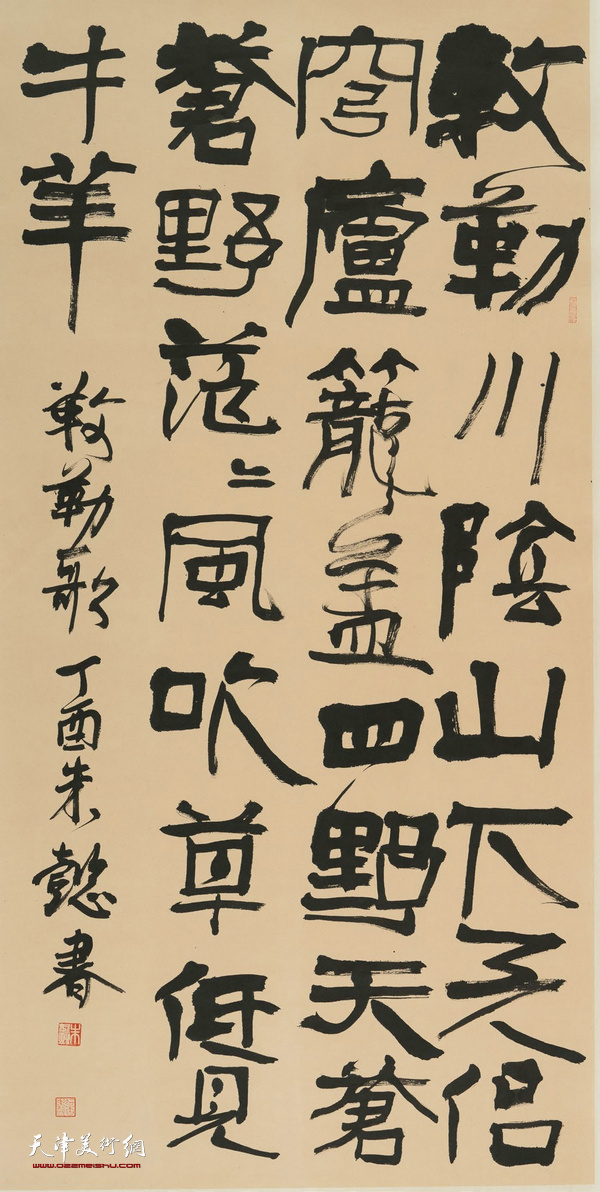 敕勒川陰山下天佀
穹廬籠盖四野天蒼
蒼野茫〻風吹草低見
牛羊
敕勒歌 丁酉朱懿書
天津美術網
www.022meishu.com